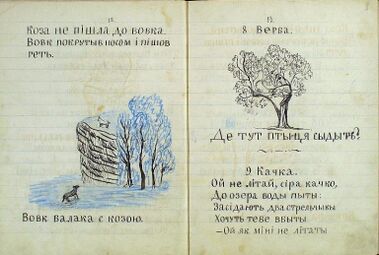 Коза не пішла до вовка.
Вовк покрутыв носом і пішов
геть.
Вовк балака с козою.
8. Верба.
Де тут птыця сыдыть?
9. Качка.
Ой не літай, сіра качко,
До озера воды пыты:
Засідають два стрельцыкы
Хочуть тебе вбыты
–Ой як міні не літаты